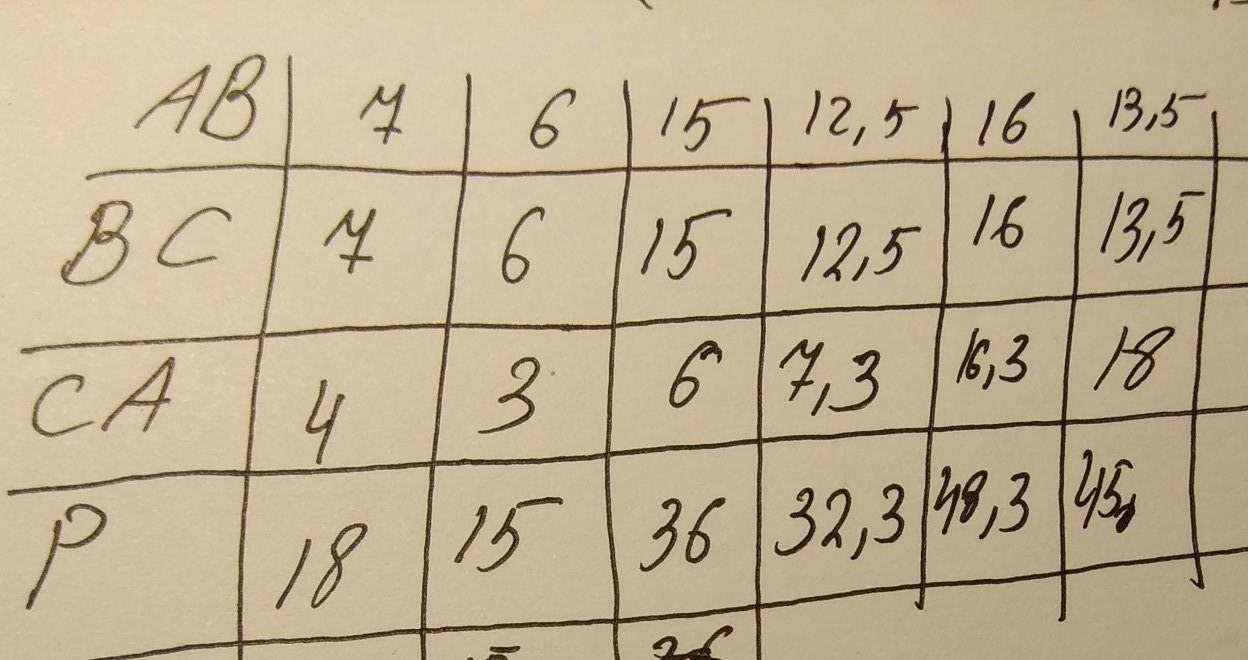 AB 7 6 15 12,5 16 13,5
BC 7 6 15 12,5 16 13,5
CA 4 3 6 7,3 16,3 18
P 18 15 36 32,3 48,3 45